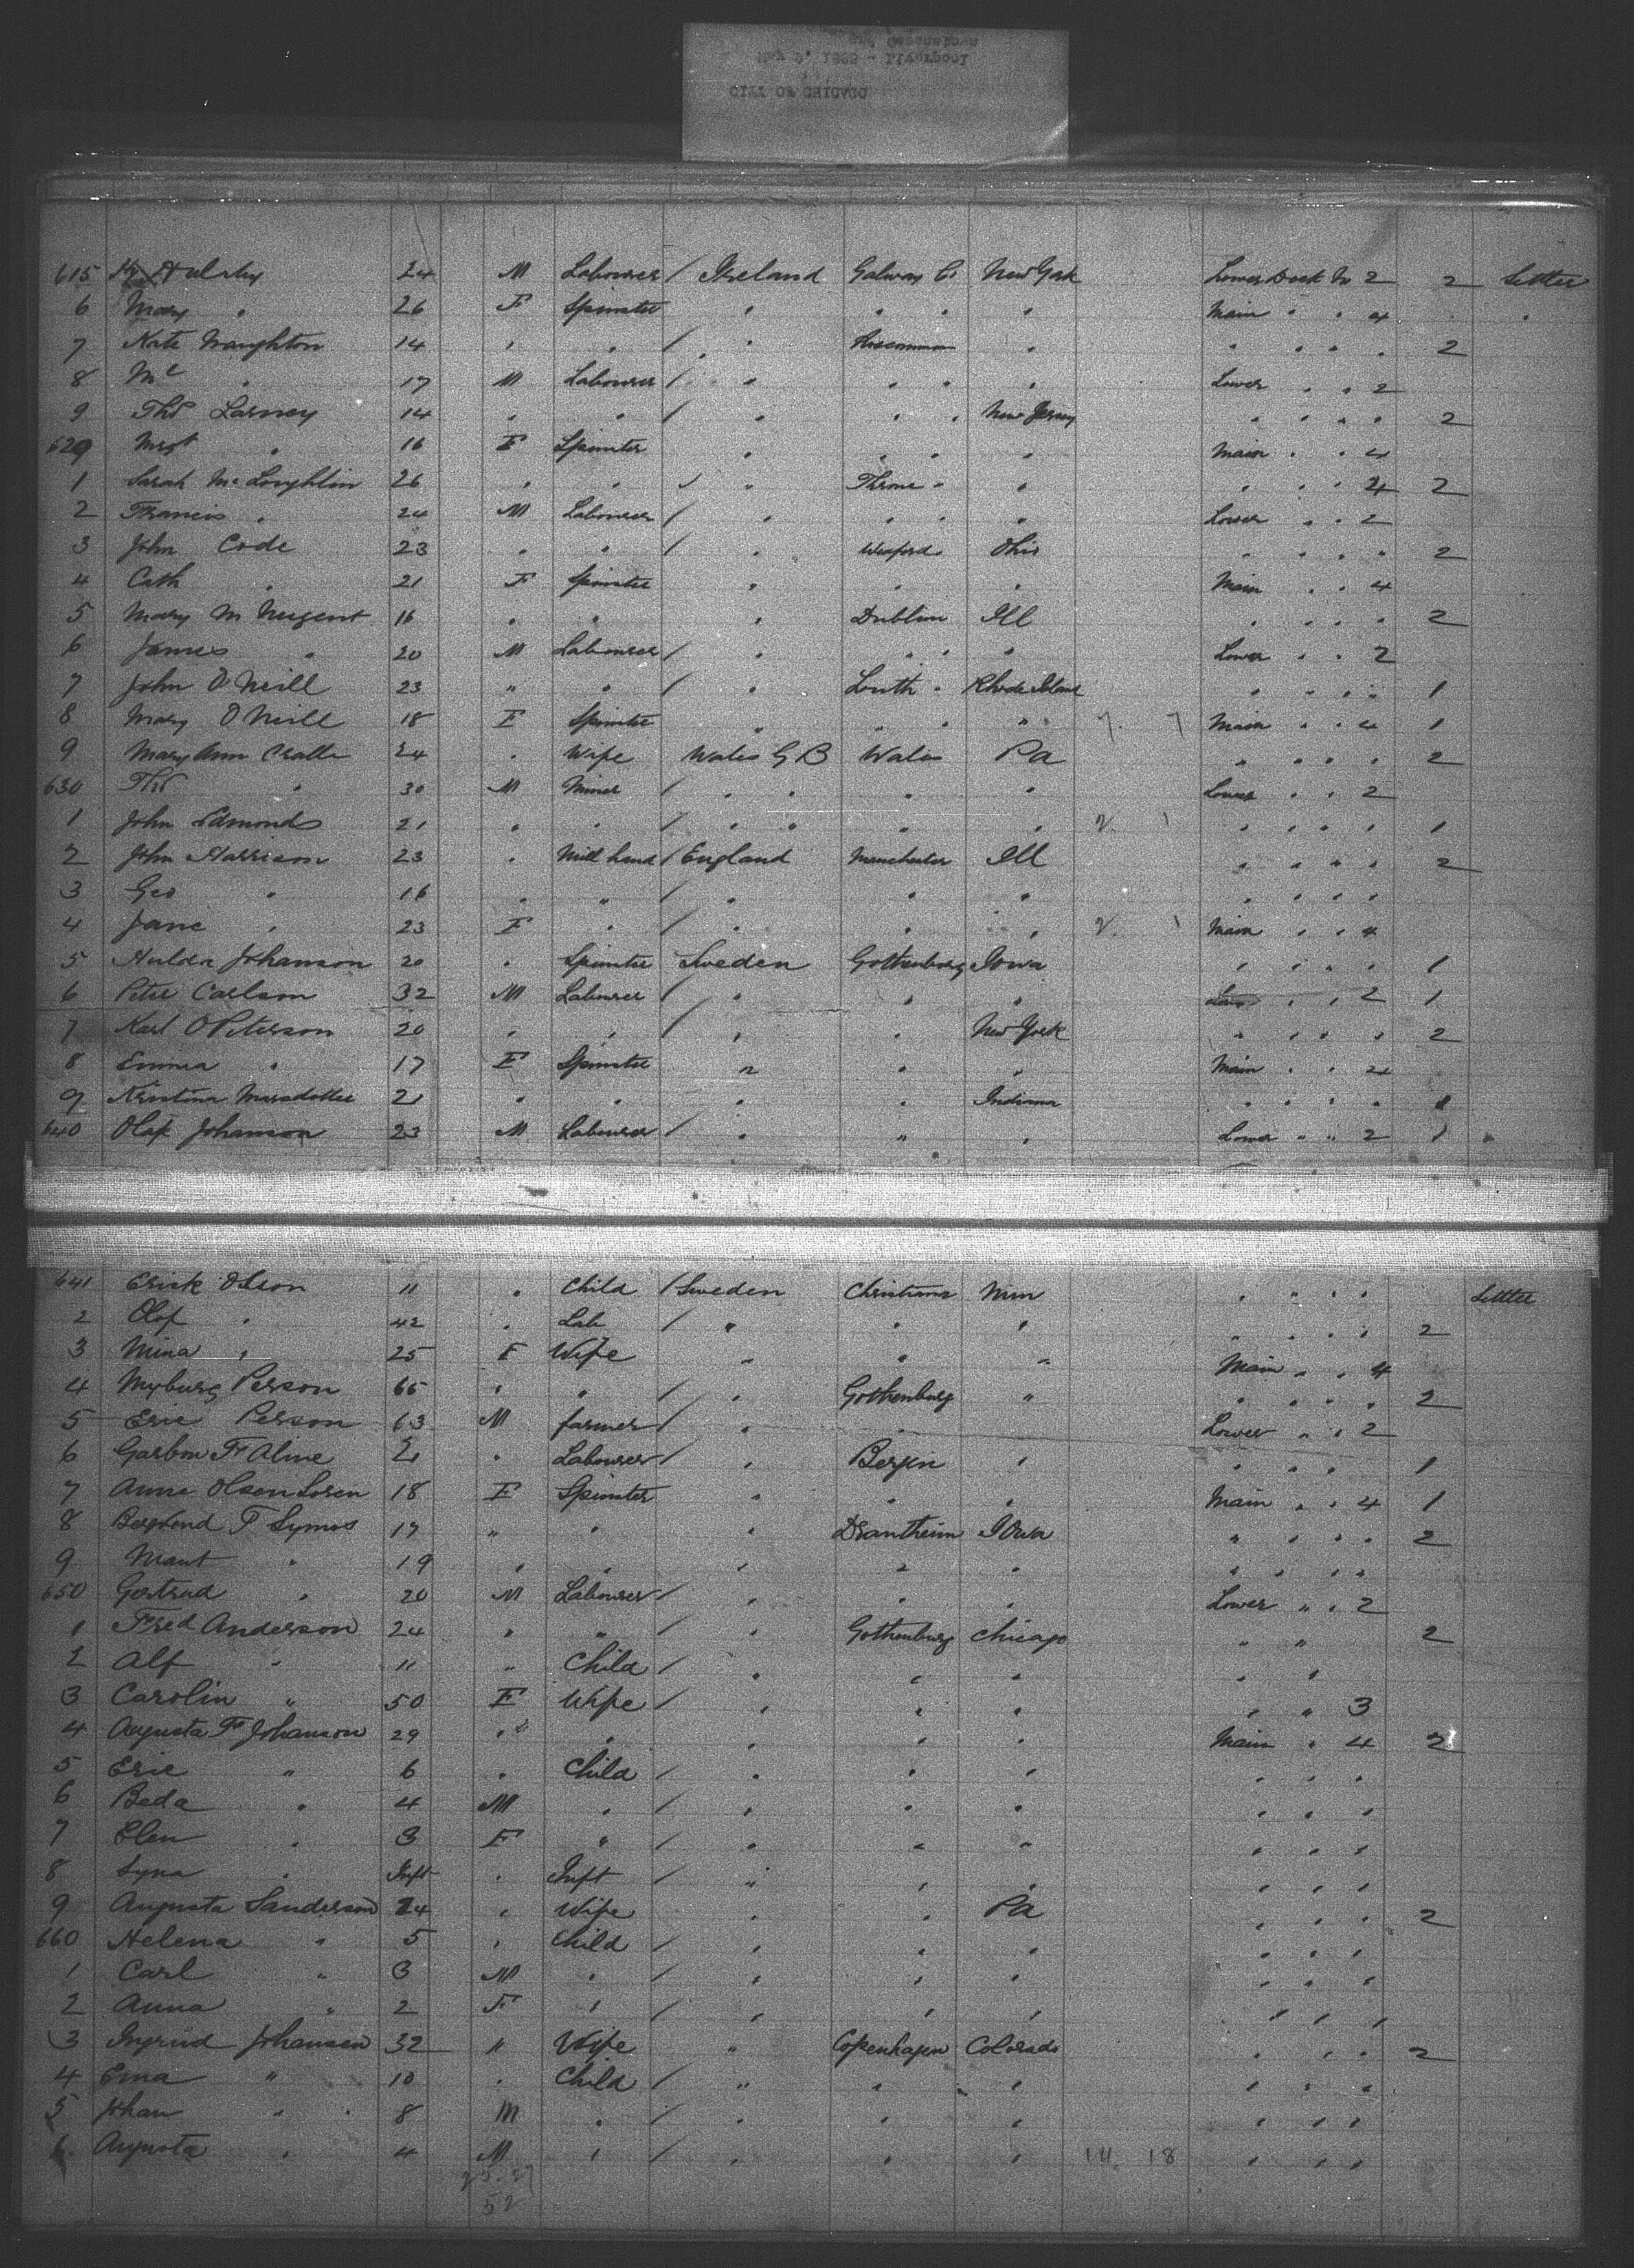 CITY OF CHICAGO
615 Hulshy 24 M Labourer / Ireland Galway Co New York Lower Deck No 2 2 Settler
6 Mary " 26 F Spinster " " " " Main " " 4 " "
7 Kate Naughton 14 " " / " " Roscommon " " " " " 2
8 Ml " 17 M Labourer / " " " " Lower " " 2
9 Thos Larney 14 " " / " " " New Jersey " " " " 2
620 Mrgt " 16 F Spinster " " " " Main " " 4
1 Sarah McLoughlin 26 " " / " " " " " " 4 2
2 Francis " 24 M Labourer / " " " " Lower " " 2
3 John Code 23 " " / " Wexford Ohio " " " " 2
4 Cath " 21 F Spinster " " " Main " " 4
5 Mary M Nugent 16 " " " Dublin Ill " " " " 2
6 James " 20 M Labourer / " " " " Lower " " 2
7 John O'Neill 23 " " / " Louth " Rhode Island " " " " 1
8 Mary O'Neill 18 F Spinster " " " " Main " " 4 1
9 Mary Ann 24 " Wife Wales G B Wales Pa " " " " 2
630 Thos " 30 M Miner / " " " " Lower " " 2
1 John Edmonds 21 " " / " " " " " " " " 1
2 John Harrison 23 " Mill hand / England Manchester Ill " " " " 2
3 Geo " 16 " " / " " " " " " "
4 Jane " 23 F " / " " " Main " " 4
5 Hulda Johanson 20 " Spinster Sweden Gothenburg Iowa " " " " 1
6 Peter Carlson 32 M Labourer / " " " Low " " 2 1
7 Karl O Peterson 20 " " / " " New York " " " " 2
8 Emma " 17 F Spinster " " " Main " " 4
9 Kristina Marsdotter 21 " " " " Indiana " " " " 1
640 Olaf Johanson 23 M Labourer / " " " Lower " " 2 1
641 Erick Olson 11 " Child / Sweden Christiana Minn " " " " Settler
2 Olof " 42 " Lab / " " " " " " " 2
3 Mina " 25 F Wife " " " Main " " 4
4 Person 65 " " / " Gothenburg " " " " " 2
5 Eric Person 63 M farmer / " " Lower " " 2
6 21 " Labourer / " Bergen " " " " 1
7 Anne Olsen 18 F Spinster " " " Main " " 4 1
8 T Symos 17 " " " Drantheim Iowa " " " " 2
9 Maut " 19 " " " " " " " " "
650 Gertrud " 20 M Labourer / " " " Lower " " 2
1 Fred Anderson 24 " " / " Gothenburg Chicago " " 2
2 Alf " 11 " Child / " " " " "
3 Carolin " 50 F Wife / " " " " " 3
4 Augusta F Johanson 29 " " " " " Main " 4 2
5 Eric " 6 " Child / " " " " " "
6 Beda " 4 M " / " " " " " "
7 Elen " 3 F " / " " " " " "
8 Syna " Inft " Inft / " " " " " "
9 Augusta Sanderson 24 " Wife " " Pa " " " 2
660 Helena " 5 " Child / " " " " " "
1 Carl " 3 M " / " " " " " "
2 Anna " 2 F " / " " " " " "
3 Ingrid Johansen 32 " Wife " Copenhagen Colorado " " " 2
4 Erna " 10 " Child / " " " " " "
5 Johan " 8 M " / " " " " " "
6 Augusta " 4 M " / " " " 14. 18 " " "
25. 27
52